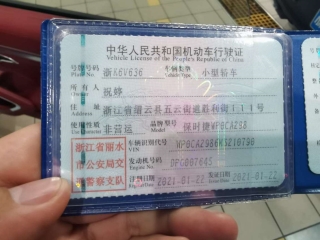 中华人民共和国机动车行驶证
Vehicle License of the People's Republic of China
号牌号码 浙K6V636 车辆类型 小型轿车
Plate No. Vehicle Type
所有人 祝婷
Owner
住址 浙江省缙云县五云街道胜利街111号
Address
使用性质 非营运 品牌型号 保时捷WP0CA298
Use Character Model
浙江省丽水 车辆识别代号
VIN
市公安局交 发动机号码
Engine No.
通警察支队 注册日期 2021-01-22 发证日期 2021-01-22